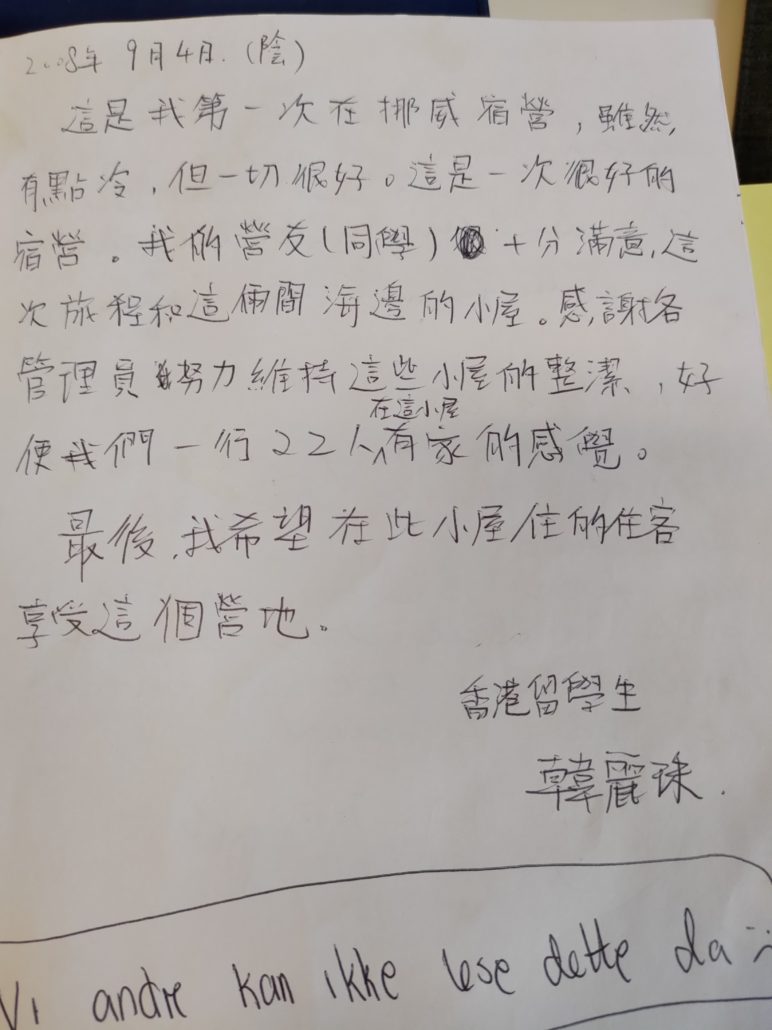 2008年 9月4日.(陰)
這是我第一次在挪威宿營，雖然
有點冷，但一切很好。這是一次很好的
宿營。我的營友(同學)十分滿意，這
次旅程和這倆間海邊的小屋。感謝各
管理員努力維持這些小屋的整潔，好
在這小屋
使我們一行22人有家的感覺。
最後，我希望在此小屋住的住客
享受這個營地。
香港留學生
韓麗珠.
Vi andre kan ikke lese dette da :)